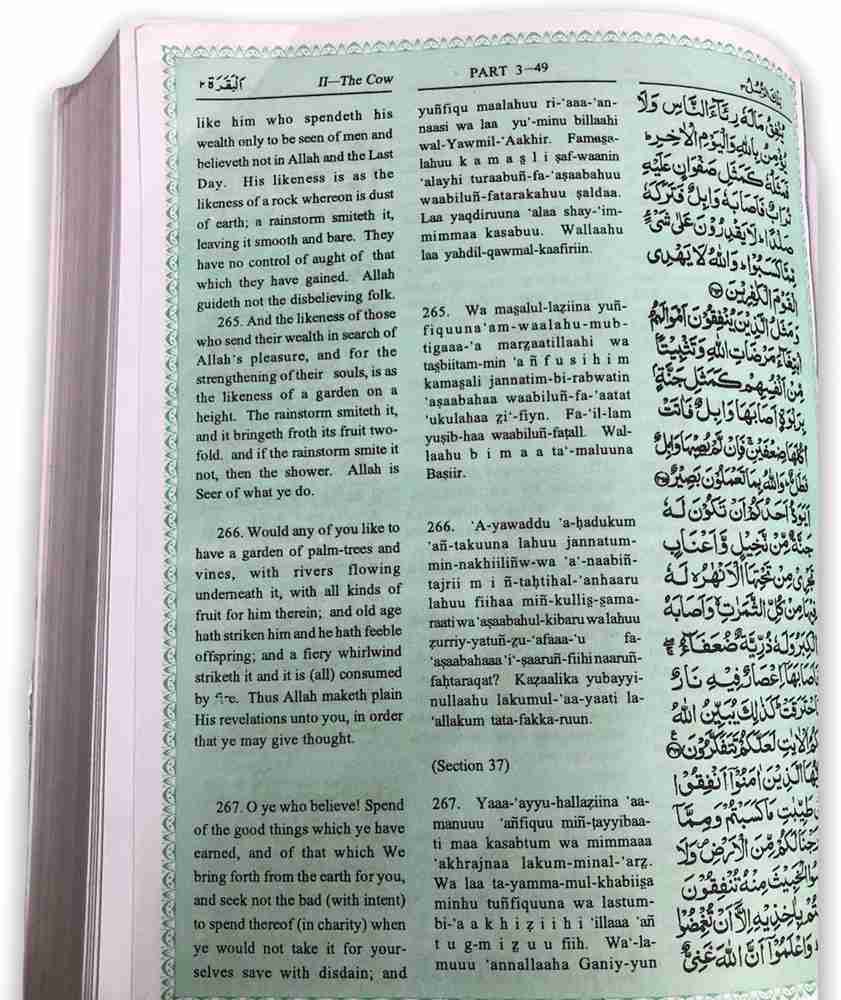 البقرة ٢
II—The Cow
PART 3—49
like him who spendeth his
wealth only to be seen of men and
believeth not in Allah and the Last
Day. His likeness is as the
likeness of a rock whereon is dust
of earth; a rainstorm smiteth it,
leaving it smooth and bare. They
have no control of aught of that
which they have gained. Allah
guideth not the disbelieving folk.
265. And the likeness of those
who send their wealth in search of
Allah's pleasure, and for the
strengthening of their souls, is as
the likeness of a garden on a
height. The rainstorm smiteth it,
and it bringeth froth its fruit two-
fold. and if the rainstorm smite it
not, then the shower. Allah is
Seer of what ye do.
266. Would any of you like to
have a garden of palm-trees and
vines, with rivers flowing
underneath it, with all kinds of
fruit for him therein; and old age
hath striken him and he hath feeble
offspring; and a fiery whirlwind
striketh it and it is (all) consumed
by fire. Thus Allah maketh plain
His revelations unto you, in order
that ye may give thought.
267. O ye who believe! Spend
of the good things which ye have
earned, and of that which We
bring forth from the earth for you,
and seek not the bad (with intent)
to spend thereof (in charity) when
ye would not take it for your-
selves save with disdain; and
yuñfiqu maalahuu ri-'aaa-'an-
naasi wa laa yu'-minu billaahi
wal-Yawmil-'Aakhir. Famaṣa-
lahuu kamaṣli ṣaf-waanin
'alayhi turaabuñ-fa-'aṣaabahuu
waabiluñ-fatarakahuu ṣaldaa.
Laa yaqdiruuna 'alaa shay-'im-
mimmaa kasabuu. Wallaahu
laa yahdil-qawmal-kaafiriin.
265. Wa maṣalul-laẓiina yuñ-
fiquuna'am-waalahu-mub-
tigaaa-'a marẓaatillaahi wa
taṣbiitam-min 'añfusihim
kamaṣali jannatim-bi-rabwatin
'aṣaabahaa waabiluñ-fa-'aatat
'ukulahaa ẓi'-fiyn. Fa-'il-lam
yuṣib-haa waabiluñ-faṭall. Wal-
laahu bimaa ta'-maluuna
Baṣiir.
266. 'A-yawaddu 'a-ḥadukum
'añ-takuuna lahuu jannatum-
min-nakhiiliñw-wa 'a'-naabiñ-
tajrii miñ-taḥtihal-'anhaaru
lahuu fiihaa miñ-kulliṣ-ṣama-
raati wa 'aṣaabahul-kibaru wa lahuu
ẓurriy-yatuñ-ẓu-'afaaa-'u fa-
'aṣaabahaaa 'i'-ṣaaruñ-fiihi naaruñ-
faḥtaraqat? Kaẓaalika yubayyi-
nullaahu lakumul-'aa-yaati la-
'allakum tata-fakka-ruun.
(Section 37)
267. Yaaa-'ayyu-hallaẓiina 'aa-
manuuu 'añfiquu miñ-ṭayyibaa-
ti maa kasabtum wa mimmaaa
'akhrajnaa lakum-minal-'arẓ.
Wa laa ta-yamma-mul-khabiiṣa
minhu tuñfiquuna wa lastum-
bi-'aakhiẓiihi 'illaaa 'añ
tug-miẓuu fiih. Wa'-la-
muuu 'annallaaha Ganiy-yun
يُنْفِقُ مَالَهُ رِئَآءَ النَّاسِ وَلَا
يُؤْمِنُ بِاللّٰهِ وَالْيَوْمِ الْاٰخِرِ
فَمَثَلُهُ كَمَثَلِ صَفْوَانٍ عَلَيْهِ
تُرَابٌ فَاَصَابَهُ وَابِلٌ فَتَرَكَهُ
صَلْدًا لَا يَقْدِرُوْنَ عَلٰى شَيْءٍ
مِّمَّا كَسَبُوْا وَاللّٰهُ لَا يَهْدِى
الْقَوْمَ الْكٰفِرِيْنَ
وَمَثَلُ الَّذِيْنَ يُنْفِقُوْنَ اَمْوَالَهُمُ
ابْتِغَآءَ مَرْضَاتِ اللّٰهِ وَتَثْبِيْتًا
مِّنْ اَنْفُسِهِمْ كَمَثَلِ جَنَّةٍ
بِرَبْوَةٍ اَصَابَهَا وَابِلٌ فَاٰتَتْ
اُكُلَهَا ضِعْفَيْنِ فَاِنْ لَّمْ يُصِبْهَا وَابِلٌ
فَطَلٌّ وَاللّٰهُ بِمَا تَعْمَلُوْنَ بَصِيْرٌ
اَيَوَدُّ اَحَدُكُمْ اَنْ تَكُوْنَ لَهُ
جَنَّةٌ مِّنْ نَّخِيْلٍ وَّاَعْنَابٍ
تَجْرِىْ مِنْ تَحْتِهَا الْاَنْهٰرُ لَهُ
فِيْهَا مِنْ كُلِّ الثَّمَرٰتِ وَاَصَابَهُ
الْكِبَرُ وَلَهُ ذُرِّيَّةٌ ضُعَفَآءُ
فَاَصَابَهَا اِعْصَارٌ فِيْهِ نَارٌ
فَاحْتَرَقَتْ كَذٰلِكَ يُبَيِّنُ اللّٰهُ
لَكُمُ الْاٰيٰتِ لَعَلَّكُمْ تَتَفَكَّرُوْنَ
الَّذِيْنَ اٰمَنُوْا اَنْفِقُوْا
طَيِّبٰتِ مَا كَسَبْتُمْ وَمِمَّا
لَكُمْ مِّنَ الْاَرْضِ وَلَا
الْخَبِيْثَ مِنْهُ تُنْفِقُوْنَ
بِاٰخِذِيْهِ اِلَّا اَنْ تُغْمِضُوْا
وَاعْلَمُوْا اَنَّ اللّٰهَ غَنِىٌّ